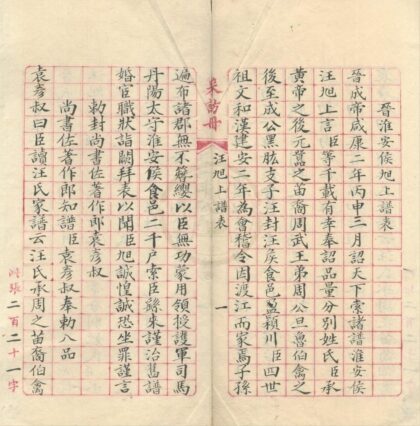 晉淮安侯旭上譜表
晉成帝咸康二年丙申三月詔天下索諸譜淮安侯
汪旭上言臣等千載有幸奉詔品量分別姓氏臣承
黃帝之後元囂之苗裔周武王弟周公旦魯伯禽之
後至成公黑肱支子汪封汪侯食邑潁川臣四世
祖文和漢建安二年為會稽令因渡江而家焉子孫
采訪冊
汪旭上譜表
一
遍布諸郡無不簪纓以臣無功蒙用領授護軍司馬
丹陽太守淮安侯食邑二千戶索臣繇來謹治舊譜
婚官職狀詣闕拜表以聞臣旭誠惶誠恐坐罪謹言
勅封尚書佐著作郎袁彥叔
尚書佐著作郎知譜臣袁彥叔奉勅八品
袁彥叔曰臣讀汪氏家譜云汪氏承周之苗裔伯禽
張二百二十一字